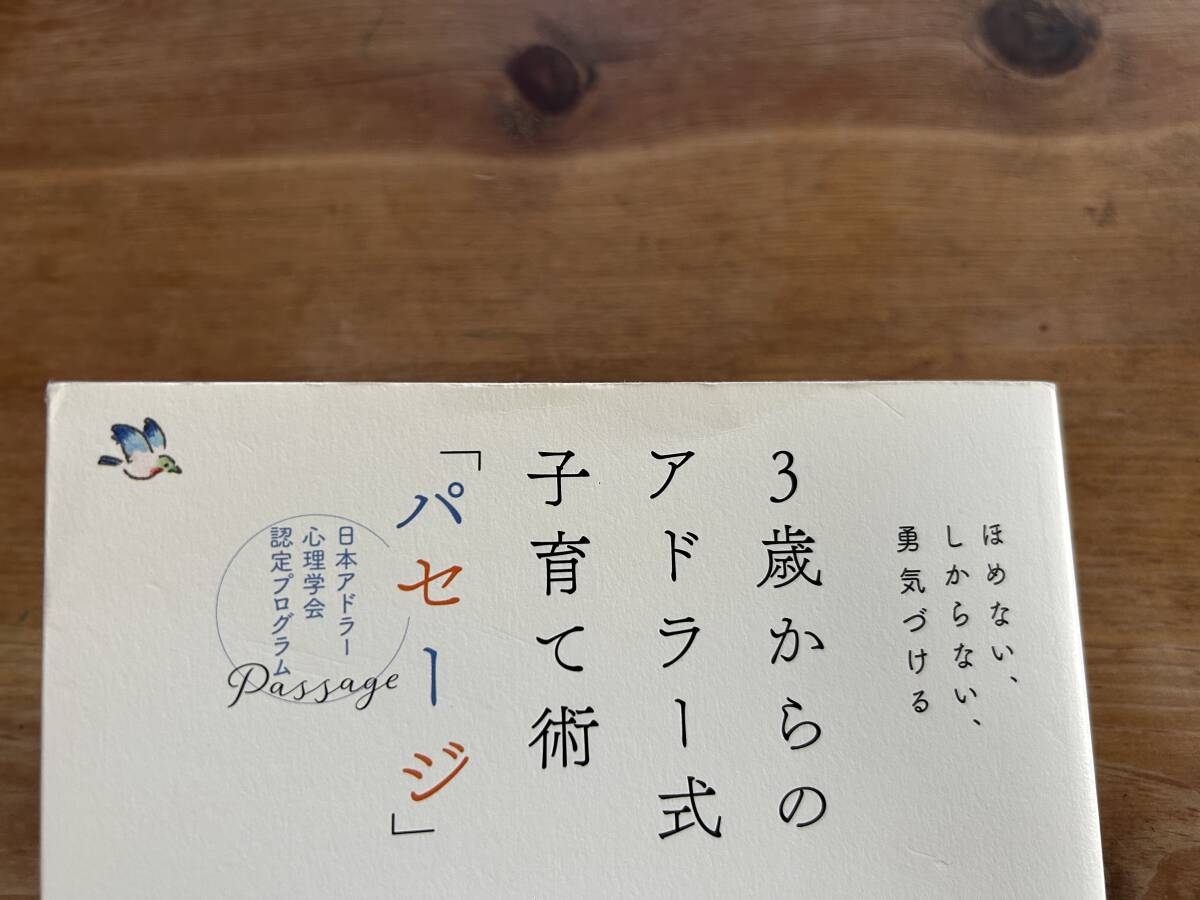 ほめない、
しからない、
勇気づける
3歳からの
アドラー式
子育て術
「パセージ」
日本アドラー
心理学会
認定プログラム
Passage